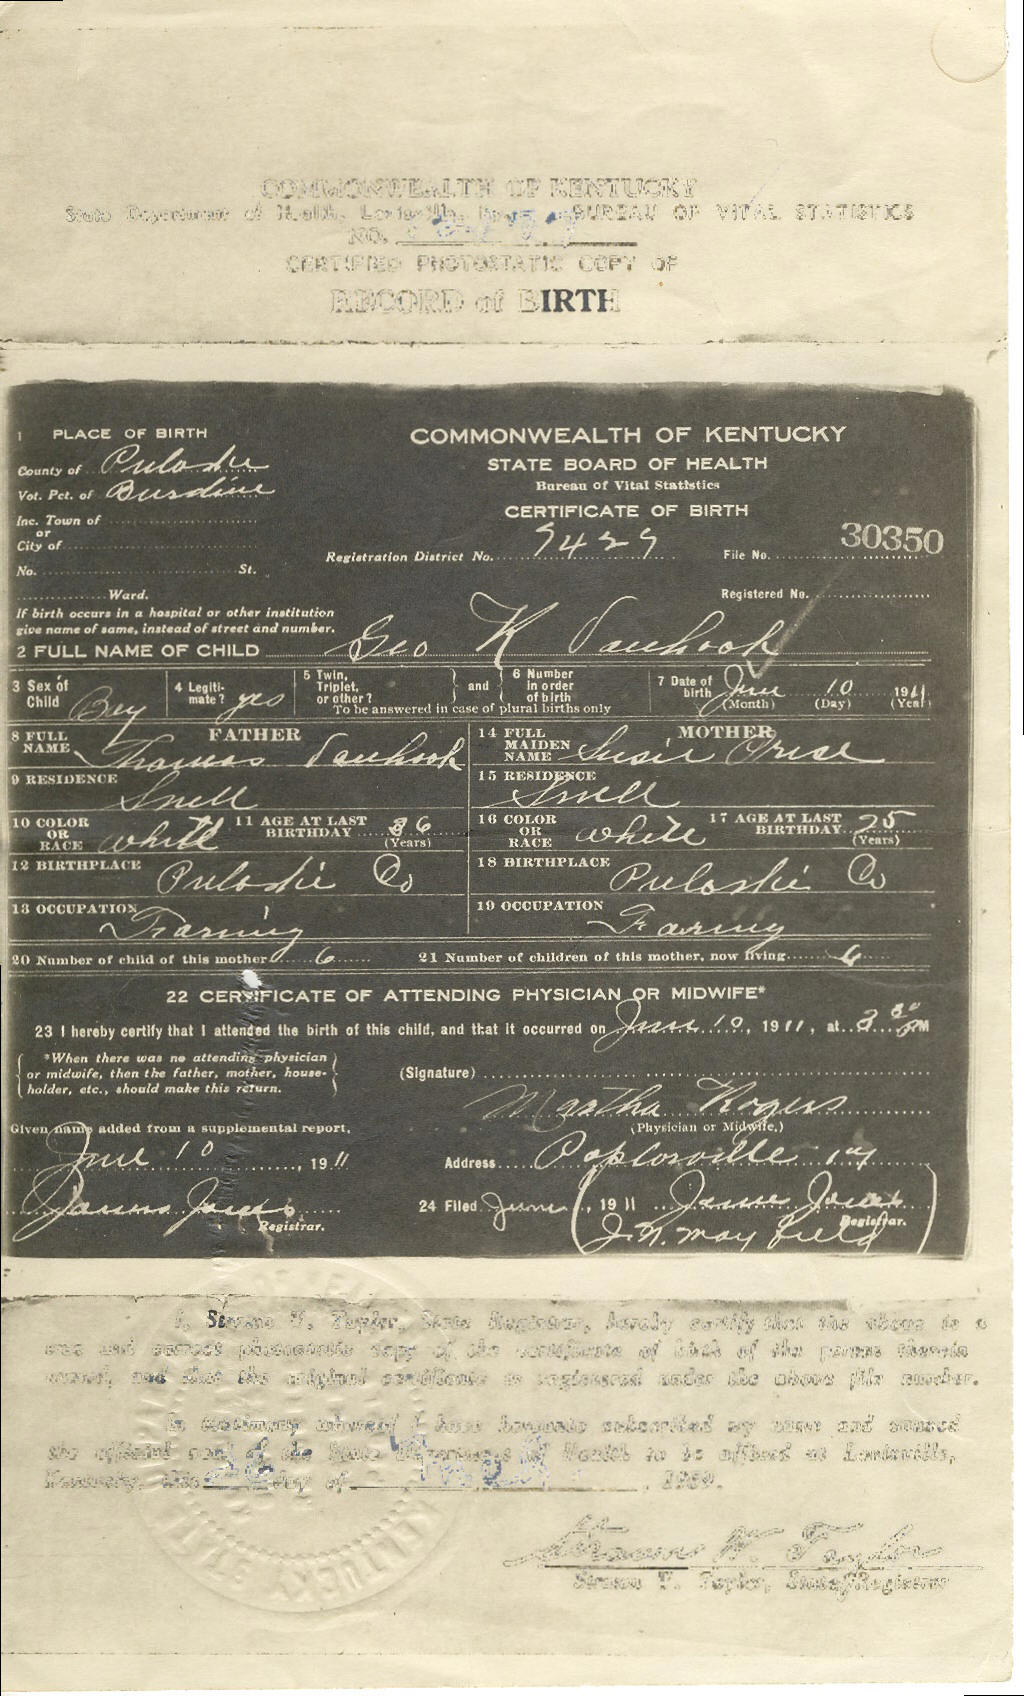 COMMONWEALTH OF KENTUCKY
State Department of Health, Louisville, BUREAU OF VITAL STATISTICS
NO.
CERTIFIED PHOTOSTATIC COPY OF
RECORD of BIRTH
1 PLACE OF BIRTH
County of Pulaskie
Vot. Pct. of Burdine
Inc. Town of
or
City of
No. St.
Ward.
If birth occurs in a hospital or other institution
give name of same, instead of street and number.
COMMONWEALTH OF KENTUCKY
STATE BOARD OF HEALTH
Bureau of Vital Statistics
CERTIFICATE OF BIRTH
Registration District No. 9429
File No. 30350
Registered No.
2 FULL NAME OF CHILD Geo K Vanhook
3 Sex of Child Boy
4 Legitimate? yes
5 Twin, Triplet, or other?
and
6 Number in order of birth
To be answered in case of plural births only
7 Date of birth June 10 1911
(Month) (Day) (Year)
FATHER
8 FULL NAME Thomas Vanhook
9 RESIDENCE
Snell
10 COLOR OR RACE White
11 AGE AT LAST BIRTHDAY 36
(Years)
12 BIRTHPLACE Pulaskie Co
13 OCCUPATION
Farming
MOTHER
14 FULL MAIDEN NAME Susie
15 RESIDENCE
Snell
16 COLOR OR RACE White
17 AGE AT LAST BIRTHDAY 25
(Years)
18 BIRTHPLACE
Pulaskie Co
19 OCCUPATION
Farming
20 Number of child of this mother 6
21 Number of children of this mother, now living 6
22 CERTIFICATE OF ATTENDING PHYSICIAN OR MIDWIFE*
23 I hereby certify that I attended the birth of this child, and that it occurred on June 10, 1911, at 3 30 PM
*When there was no attending physician
or midwife, then the father, mother, householder, etc., should make this return.
(Signature)
Martha Rogers
(Physician or Midwife.)
Given name added from a supplemental report,
June 10, 1911
Address Poplorville Ky
James Jones
Registrar.
24 Filed June, 1911 James Jones
Registrar.
J. N. Mayfield
I, Straus W. Taylor, State Registrar, hereby certify that the above is a
true and correct photostatic copy of the certificate of birth of the person therein
named, and that the original certificate is registered under the above file number.
In testimony whereof I have hereunto subscribed my name and caused
the official seal of the State Department of Health to be affixed at Louisville,
Kentucky, this 26 day of
Taylor
Taylor, State Registrar